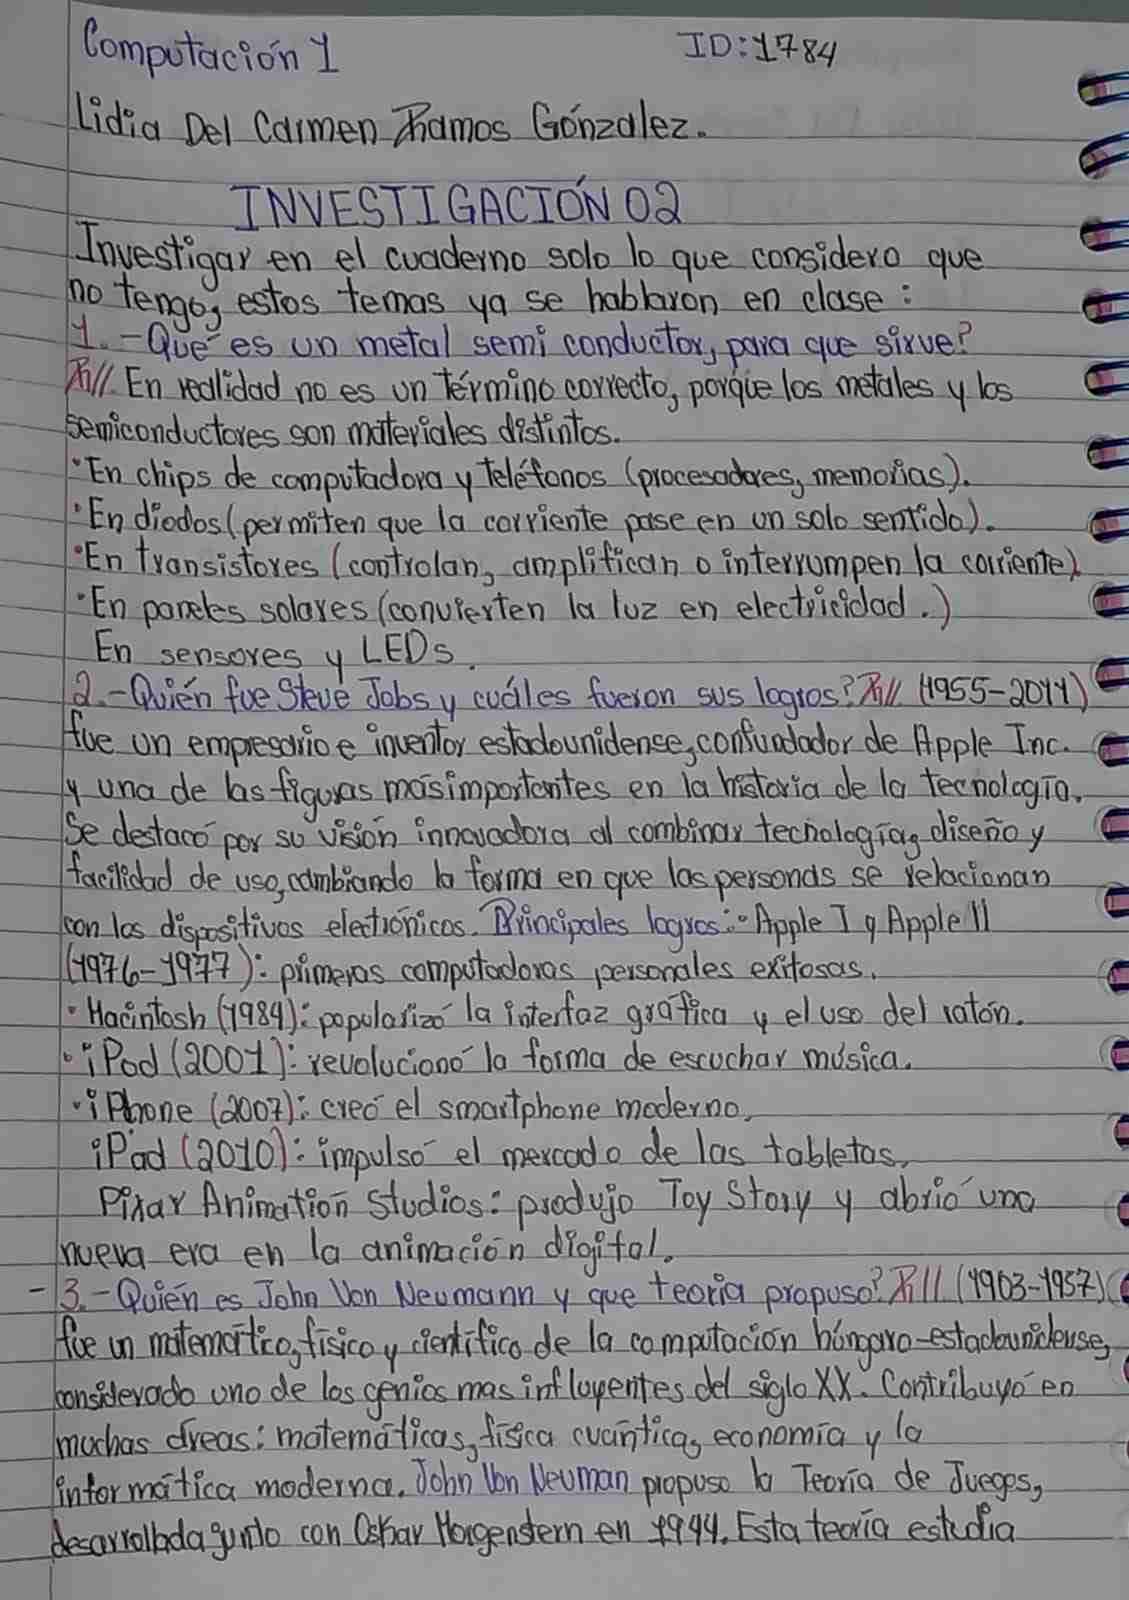 Computación 1 ID:1784
Lidia Del Carmen Ramos Gónzalez.
INVESTIGACIÓN 02
Investigar en el cuaderno solo lo que considero que
no tengo, estos temas ya se hablaron en clase:
1.-Qué es un metal semi conductor, para que sirve?
R// En realidad no es un término correcto, porque los metales y los
semiconductores son materiales distintos.
•En chips de computadora y teléfonos (procesadores, memorias).
•En diodos (permiten que la corriente pase en un solo sentido).
•En transistores (controlan, amplifican o interrumpen la corriente).
•En paneles solares (convierten la luz en electricidad.)
En sensores y LEDs.
2.-Quién fue Steve Jobs y cuáles fueron sus logros? R// (1955-2011)
fue un empresario e inventor estadounidense, confundador de Apple Inc.
y una de las figuras más importantes en la historia de la tecnología.
Se destacó por su visión innovadora al combinar tecnología, diseño y
facilidad de uso, cambiando la forma en que las personas se relacionan
con los dispositivos electrónicos. Principales logros:•Apple I y Apple II
(1976-1977): primeras computadoras personales exitosas.
•Macintosh (1984): popularizó la interfaz gráfica y el uso del ratón.
•iPod (2001): revolucionó la forma de escuchar música.
•iPhone (2007): creó el smartphone moderno.
iPad (2010): impulsó el mercado de las tabletas.
Pixar Animation Studios: produjo Toy Story y abrió una
nueva era en la animación digital.
-3.-Quién es John Von Neumann y que teoria propuso? R// (1903-1957)
fue un matemático, físico y científico de la computación húngaro-estadounidense,
considerado uno de los genios mas influyentes del siglo XX. Contribuyó en
muchas áreas: matemáticas, física cuántica, economía y la
informática moderna. John Von Neuman propuso la Teoría de Juegos,
desarrollada junto con Oskar Morgenstern en 1944. Esta teoría estudia